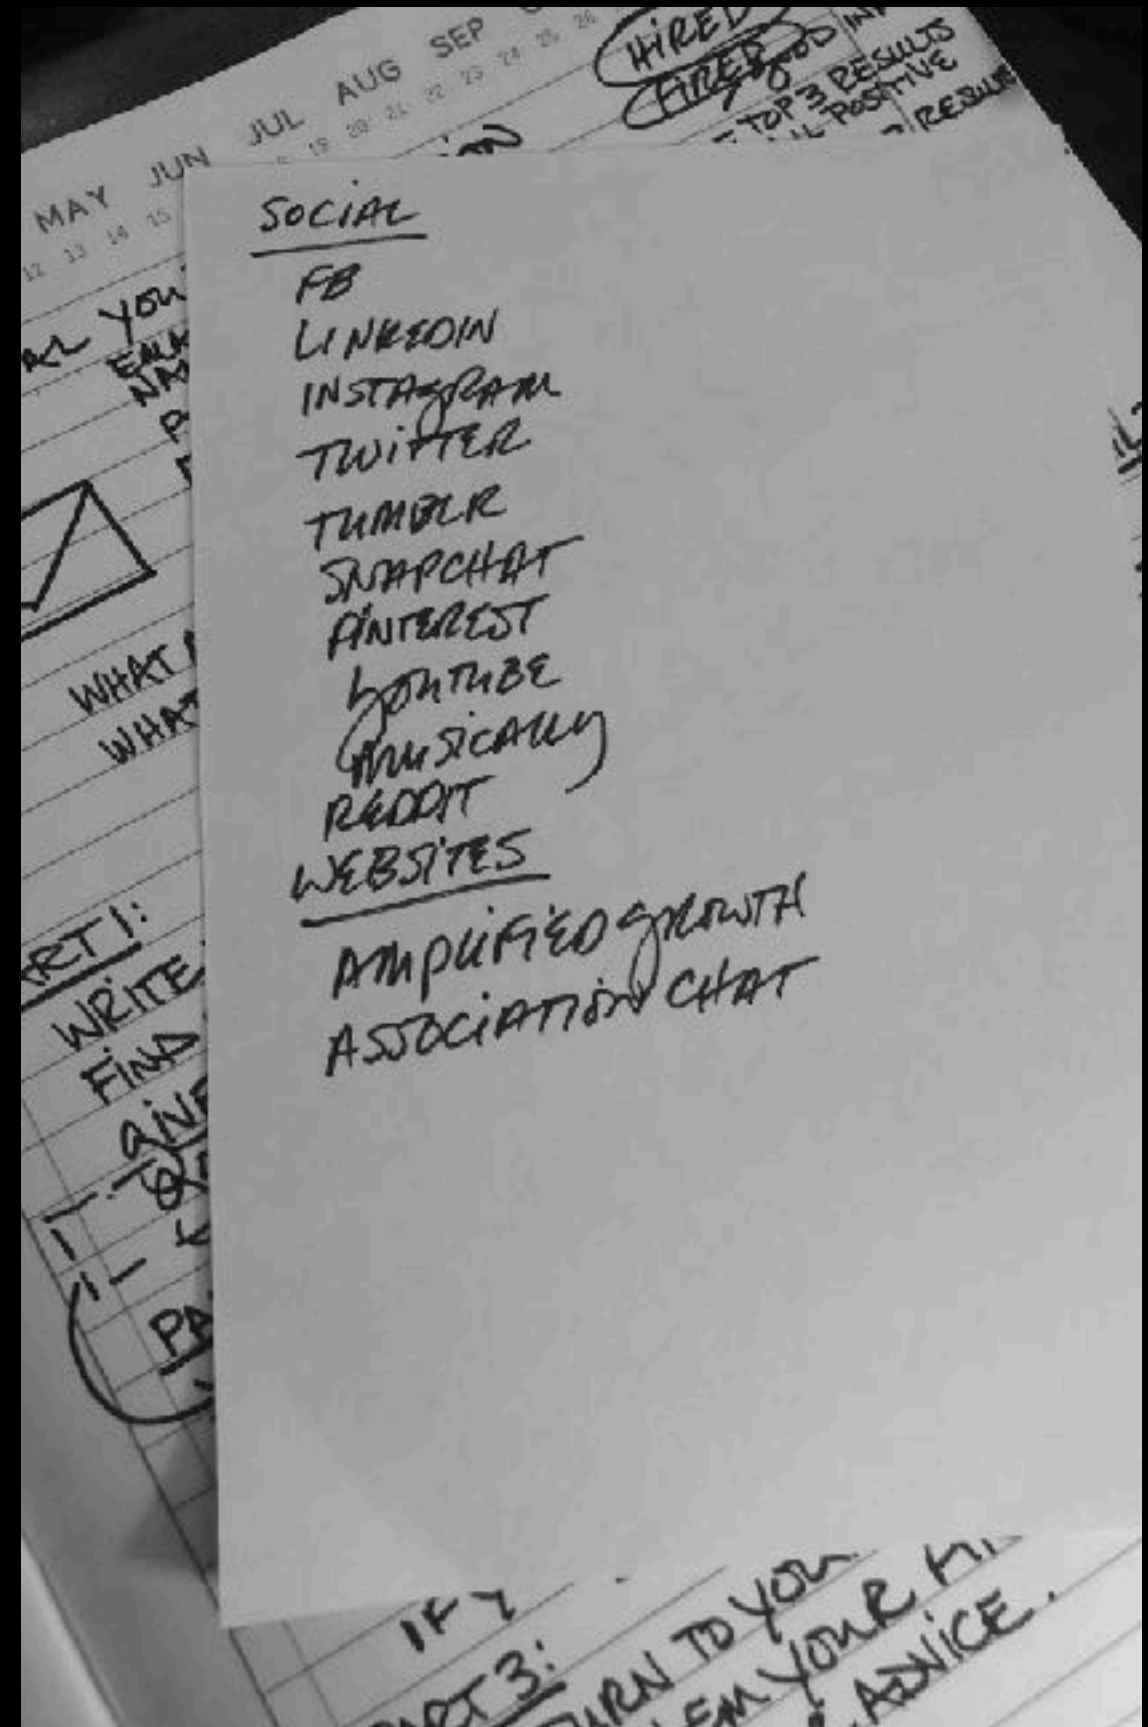 MAY JUN JUL AUG SEP
12 13 14 15 18 19 20 21 22 23 24 25 26
HIRED
FIRED GOOD
TOP 3 RESULTS
POSITIVE
RESULTS
YOU
SOCIAL
FB
LINKEDIN
INSTAGRAM
TWITTER
TUMBLR
SNAPCHAT
PINTEREST
YOUTUBE
MUSICALLY
REDDIT
WEBSITES
AMPLIFIED GROWTH
ASSOCIATION CHAT
WHAT
WHAT
WRITE
FIND
GIVE
IF Y
TO YOU
YOUR
ADVICE.